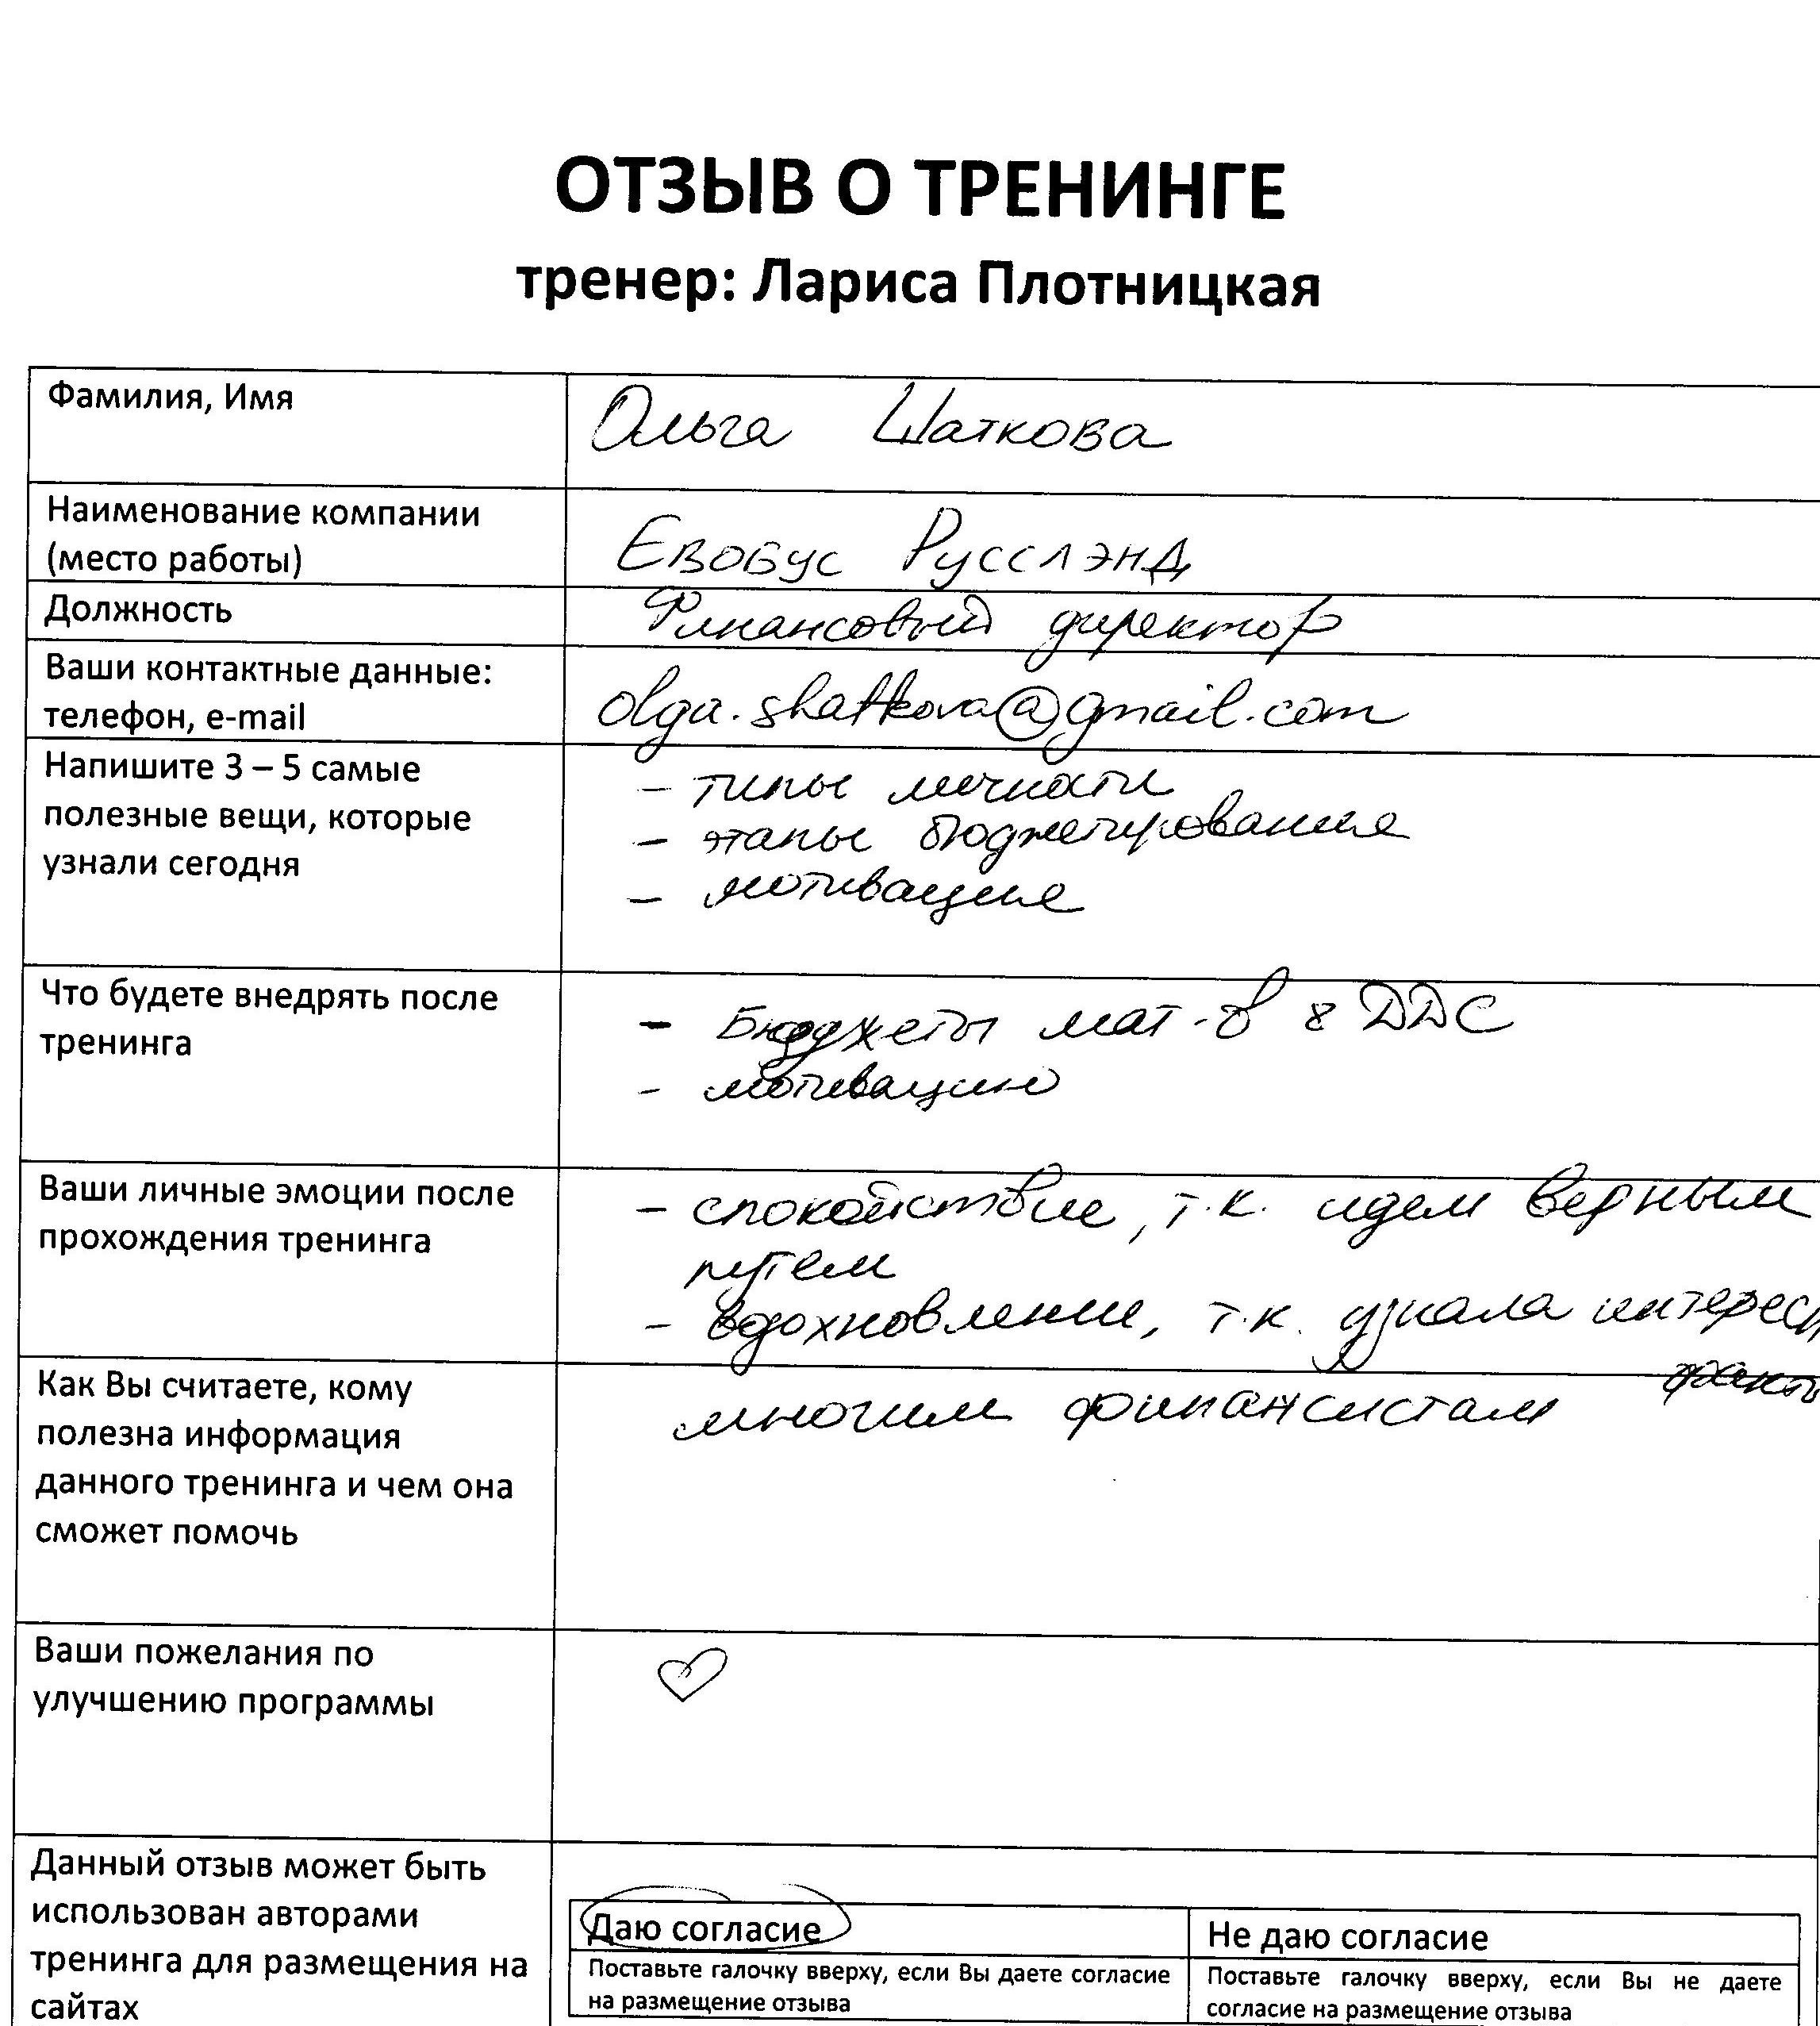 ОТЗЫВ О ТРЕНИНГЕ
тренер: Лариса Плотницкая
Фамилия, Имя
Ольга Шаткова
Наименование компании
(место работы)
Евобус Русслэнд
Должность
Финансовый директор
Ваши контактные данные:
телефон, e-mail
olga.shatkova@gmail.com
Напишите 3 – 5 самые
полезные вещи, которые
узнали сегодня
- типы личности
- этапы бюджетирования
- мотивация
Что будете внедрять после
тренинга
- Бюджеты мат-в и ДДС
- мотивацию
Ваши личные эмоции после
прохождения тренинга
- спокойствие, т.к. идем верным
путем
- вдохновление, т.к. узнала интересн
Как Вы считаете, кому
полезна информация
данного тренинга и чем она
сможет помочь
многим финансистам
Ваши пожелания по
улучшению программы
Данный отзыв может быть
использован авторами
тренинга для размещения на
сайтах
Даю согласие
Поставьте галочку вверху, если Вы даете согласие
на размещение отзыва
Не даю согласие
Поставьте галочку вверху, если Вы не даете
согласие на размещение отзыва